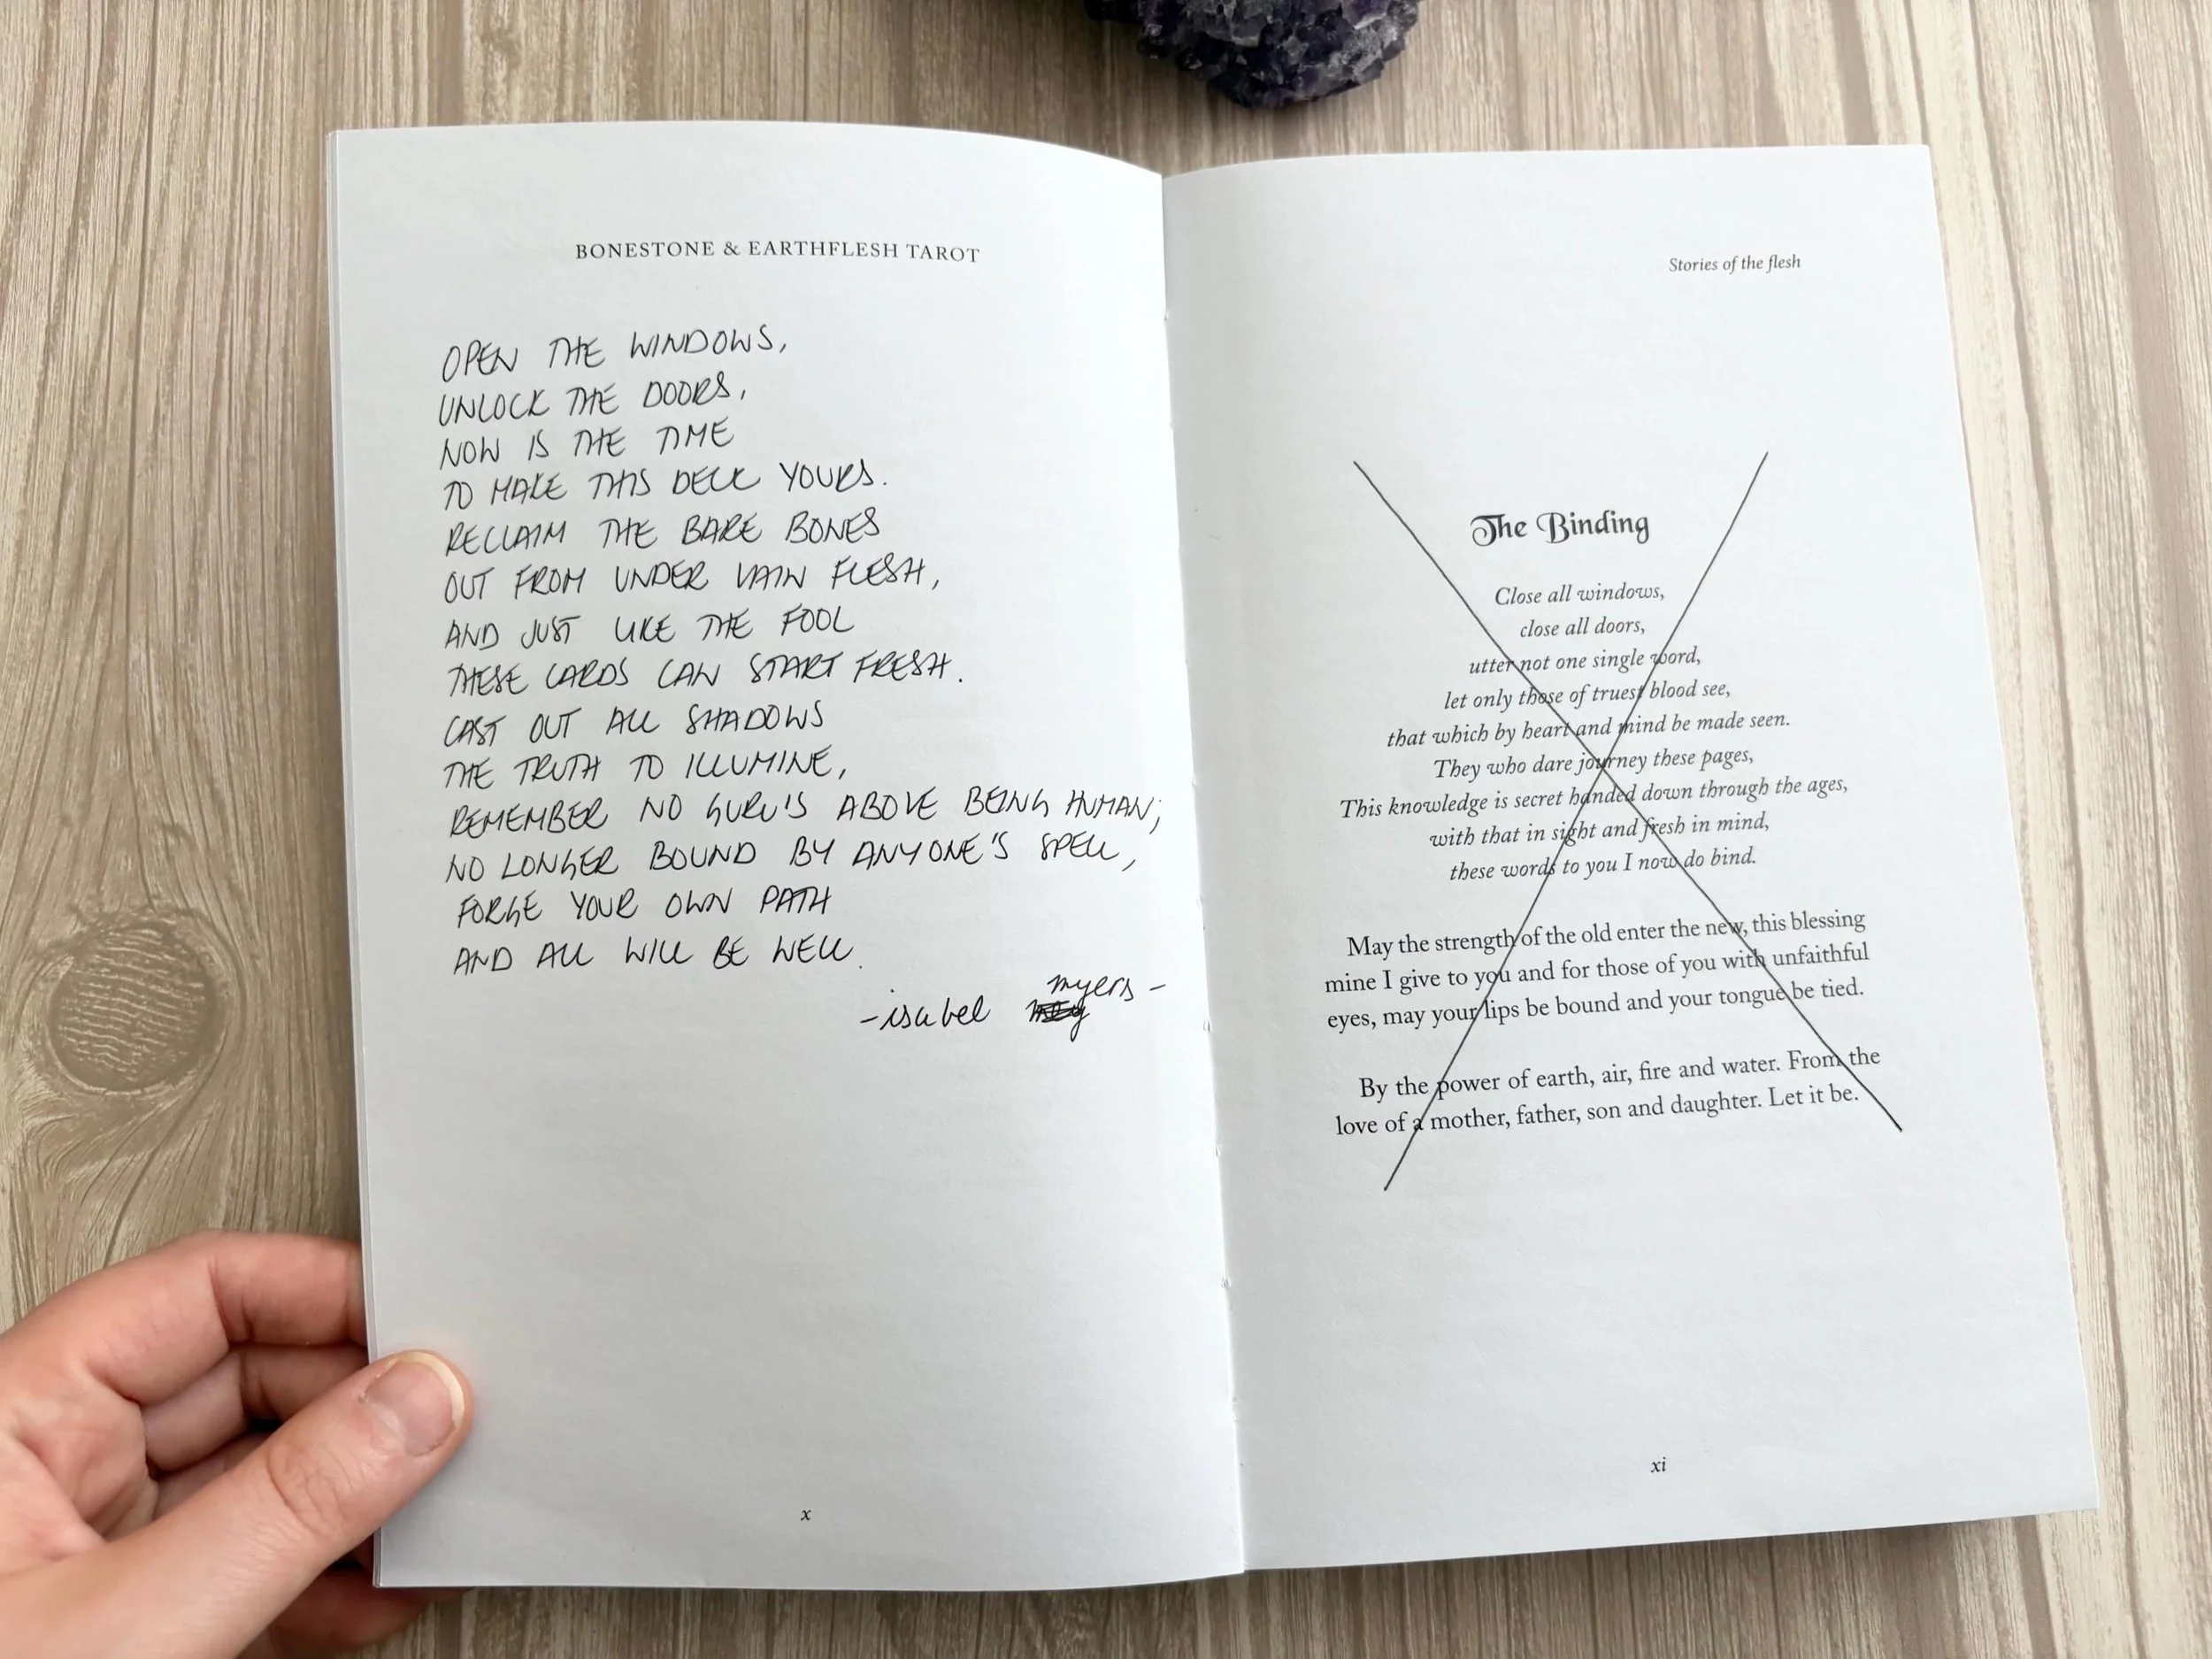 BONESTONE & EARTHFLESH TAROT
OPEN THE WINDOWS,
UNLOCK THE DOORS,
NOW IS THE TIME
TO MAKE THIS DECK YOURS.
RECLAIM THE BARE BONES
OUT FROM UNDER VAIN FLESH,
AND JUST LIKE THE FOOL
THESE CARDS CAN START FRESH.
CAST OUT ALL SHADOWS
THE TRUTH TO ILLUMINE,
REMEMBER NO GURU'S ABOVE BEING HUMAN;
NO LONGER BOUND BY ANYONE'S SPELL,
FORGE YOUR OWN PATH
AND ALL WILL BE WELL.
-isabel myers-
x
Stories of the flesh
The Binding
Close all windows,
close all doors,
utter not one single word,
let only those of truest blood see,
that which by heart and mind be made seen.
They who dare journey these pages,
This knowledge is secret handed down through the ages,
with that in sight and fresh in mind,
these words to you I now do bind.
May the strength of the old enter the new, this blessing
mine I give to you and for those of you with unfaithful
eyes, may your lips be bound and your tongue be tied.
By the power of earth, air, fire and water. From the
love of a mother, father, son and daughter. Let it be.
xi